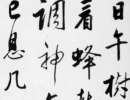 日午樹
看蜂
調神
已息几